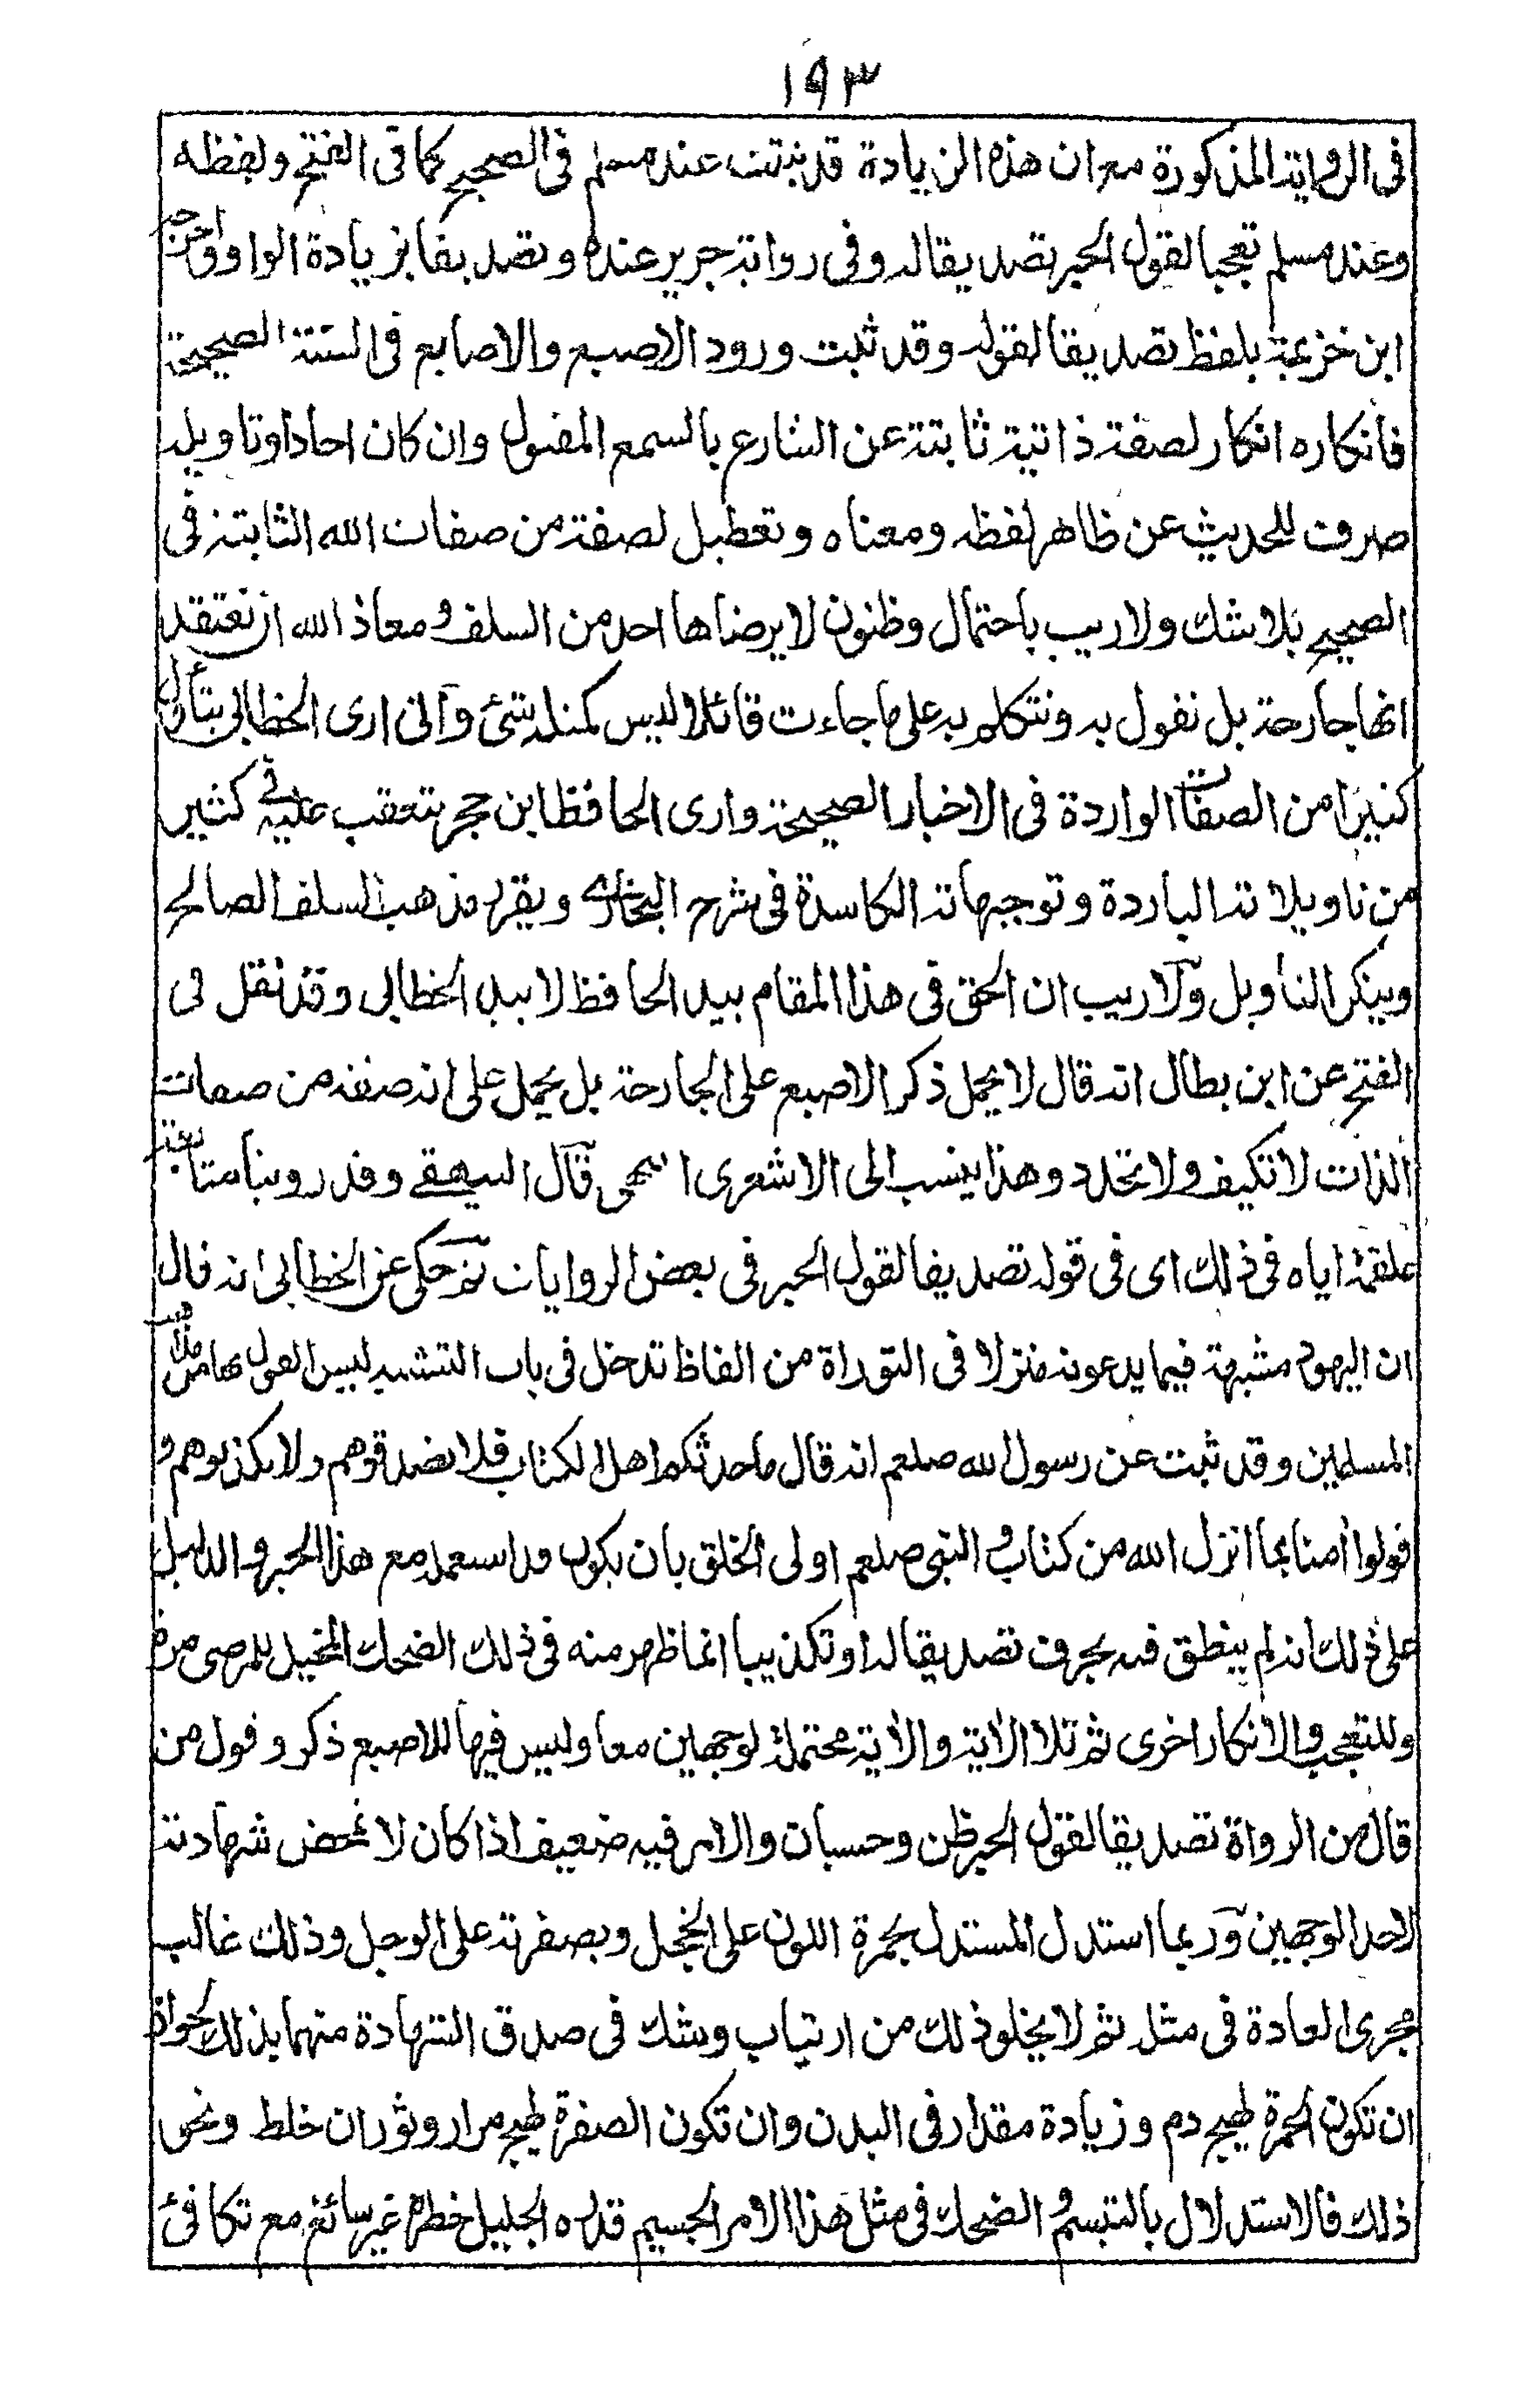 ١٩٣
فى الرواية المذكورة مع ان هذه الزيادة قد ثبتت عند مسلم فى الصحيح كما فى الفتح ولفظه
وعند مسلم تعجبا لقول الحبر تصديقا له وفى رواية جرير عنده وتصديقا بزيادة الواو واخرجه
ابن خزيمة بلفظ تصديقا لقوله وقد ثبت ورود الاصبع والاصابع فى السنة الصحيحة
فانكاره انكار لصفة ذاتية ثابتة عن الشارع بالسمع المقبول وان كان احادا وتاويله
صرف للحديث عن ظاهر لفظه ومعناه وتعطيل لصفة من صفات الله الثابتة فى
الصحيح بلا شك ولا ريب باحتمال وظنون لا يرضاها احد من السلف ومعاذ الله ان نعتقد
انها جارحة بل نقول به ونتكلم به على ما جاءت قائلا ليس كمثله شئ وانى ارى الخطابى يتأول
كثيرا من الصفات الواردة فى الاخبار الصحيحة وارى الحافظ ابن حجر يتعقب عليه فى كثير
من تاويلاته الباردة وتوجيهاته الكاسدة فى شرح البخارى ويقرر مذهب السلف الصالح
وينكر التأويل ولا ريب ان الحق فى هذا المقام بيد الحافظ لا بيد الخطابى وقد نقل فى
الفتح عن ابن بطال انه قال لا يحمل ذكر الاصبع على الجارحة بل يحمل على انه صفة من صفات
الذات لا تكيف ولا تحدد وهذا ينسب الى الاشعرى انتهى قال البيهقى وقد روينا متابعة
علقمة اياه فى ذلك اى فى قوله تصديقا لقول الحبر فى بعض الروايات ثم حكى عن الخطابى انه قال
ان اليهود مشبهة فيما يدعونه منزلا فى التوراة من الفاظ تدخل فى باب التشبيه ليس القول بها من مذاهب
المسلمين وقد ثبت عن رسول الله صلعم انه قال ما حدثكم اهل الكتاب فلا تصدقوهم ولا تكذبوهم و
قولوا امنا بما انزل الله من كتاب والنبى صلعم اولى الخلق بان يكون قد استعمله مع هذا الحبر والدليل
على ذلك انه لم ينطق فيه بحرف تصديقا له او تكذيبا انما ظهر منه فى ذلك الضحك المخيل للرضى مرة
وللتعجب والانكار اخرى ثم تلا الاية والاية محتملة لوجهين معا وليس فيها للاصبع ذكر وقول من
قال من الرواة تصديقا لقول الحبر ظن وحسبان والامر فيه ضعيف اذا كان لا تمحض شهادته
لاحد الوجهين وربما استدل المستدل بحمرة اللون على الخجل وبصفرته على الوجل وذلك غالب
مجرى العادة فى مثله ثم لا يخلو ذلك من ارتياب وشك فى صدق الشهادة منهما بذلك لجواز
ان تكون الحمرة لهيج دم وزيادة مقدار فى البدن وان تكون الصفرة لهيج مرار وثوران خلط ونحو
ذلك فالاستدلال بالتبسم والضحك فى مثل هذا الامر الجسيم قدره الجليل خطره غير سائغ مع تكافئ